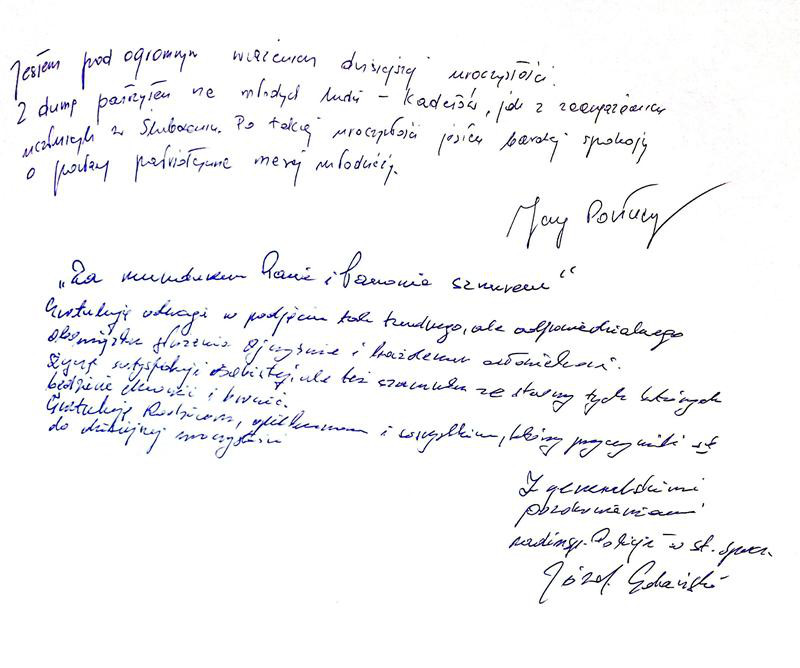 Jestem pod ogromnym wrażeniem dzisiejszej uroczystości.
Z dumą patrzyłem na młodych ludzi – Kadetów, jak z zaangażowaniem
uczestniczyli w Ślubowaniu. Po takiej uroczystości jestem bardziej spokojny
o postawy patriotyczne naszej młodzieży.
Jerzy
„Za mundurem Panie i Panowie sznurem"
Gratuluję odwagi w podjęciu tak trudnego, ale odpowiedzialnego
obowiązku służenia Ojczyźnie i każdemu człowiekowi.
Życzę satysfakcji osobistej, ale też szacunku ze strony tych których
będziecie chronić i bronić.
Gratuluję Rodzicom, opiekunom i wszystkim, którzy przyczynili się
do dzisiejszej uroczystości
Z generalskimi
pozdrowieniami
nadinsp. Policji w st. spocz.
Józef